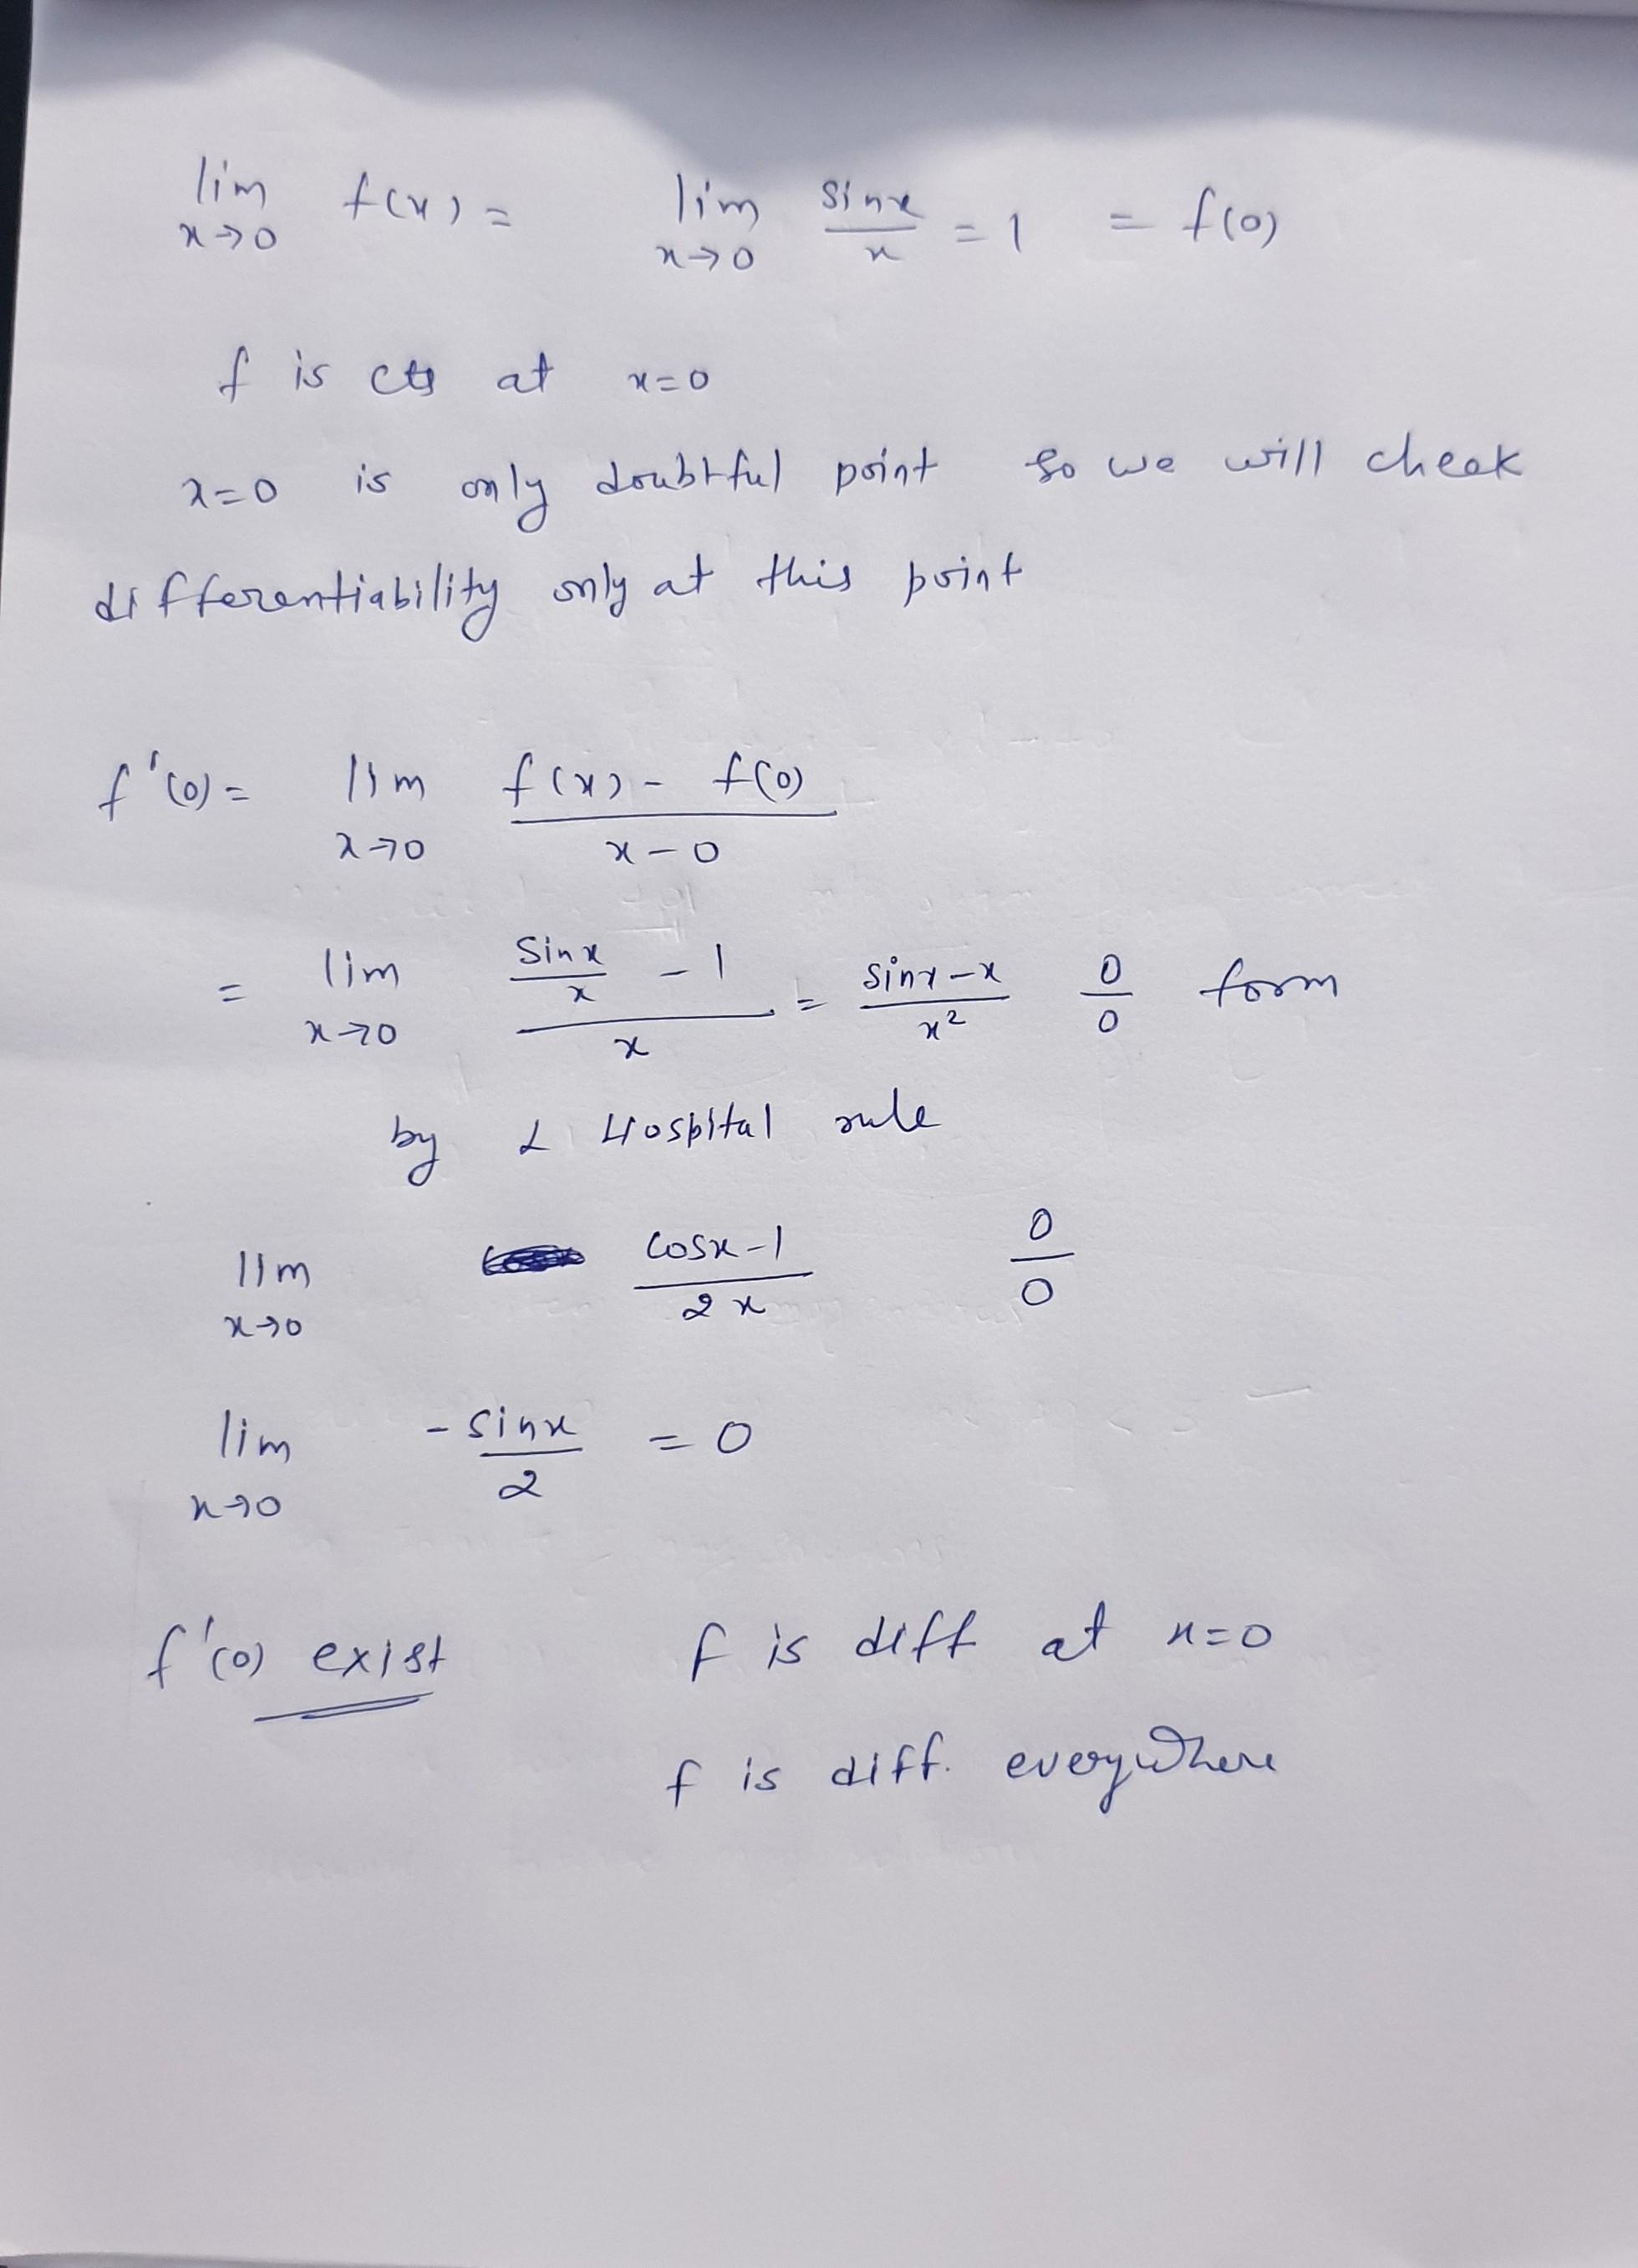 lim f(x) = lim sinx/x = 1 = f(0)
x→0 x→0
f is cts at x=0
x=0 is only doubtful point so we will cheek
differentiability only at this point
f'(0) = lim f(x) - f(0)
x→0 x-0
= lim sinx/x - 1 = sinx-x/x² 0/0 form
x→0 x
by L Hospital rule
lim cosx-1 0
x→0 2x 0
lim -sinx = 0
x→0 2
f'(0) exist f is diff at x=0
f is diff. everywhere